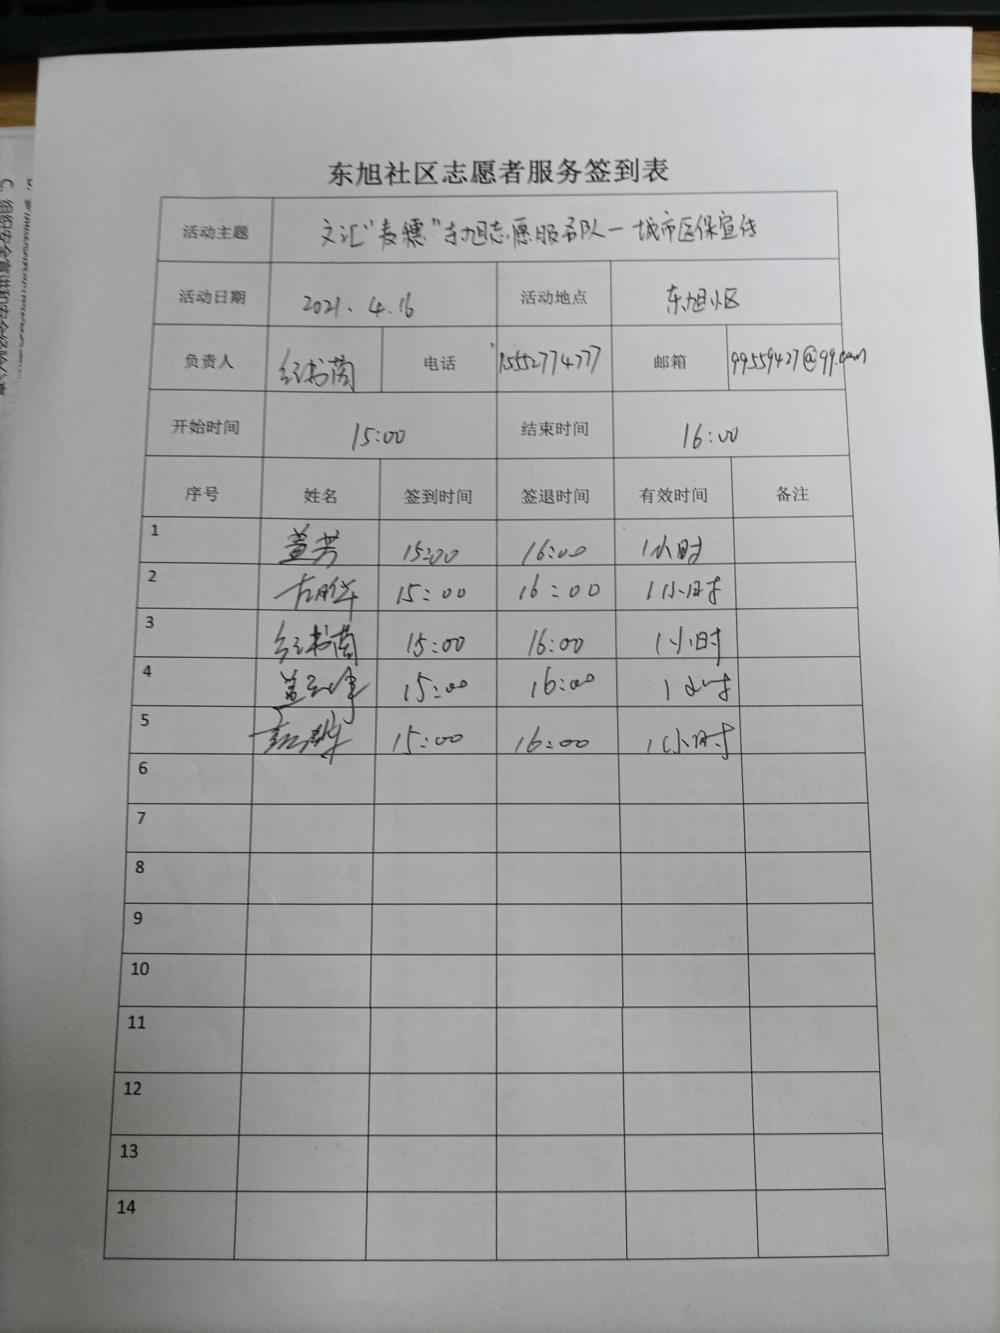 东旭社区志愿者服务签到表
活动主题 文汇“麦穗”东旭志愿服务队一城市医保宣传
活动日期 2021.4.16 活动地点 东旭小区
负责人 纪书茵 电话 15552774777 邮箱 99559427@99.com
开始时间 15:00 结束时间 16:00
序号 姓名 签到时间 签退时间 有效时间 备注
1 15:00 16:00 1小时
2 15:00 16:00 1小时
3 纪书茵 15:00 16:00 1小时
4 15:00 16:00 1小时
5 15:00 16:00 1小时
6
7
8
9
10
11
12
13
14